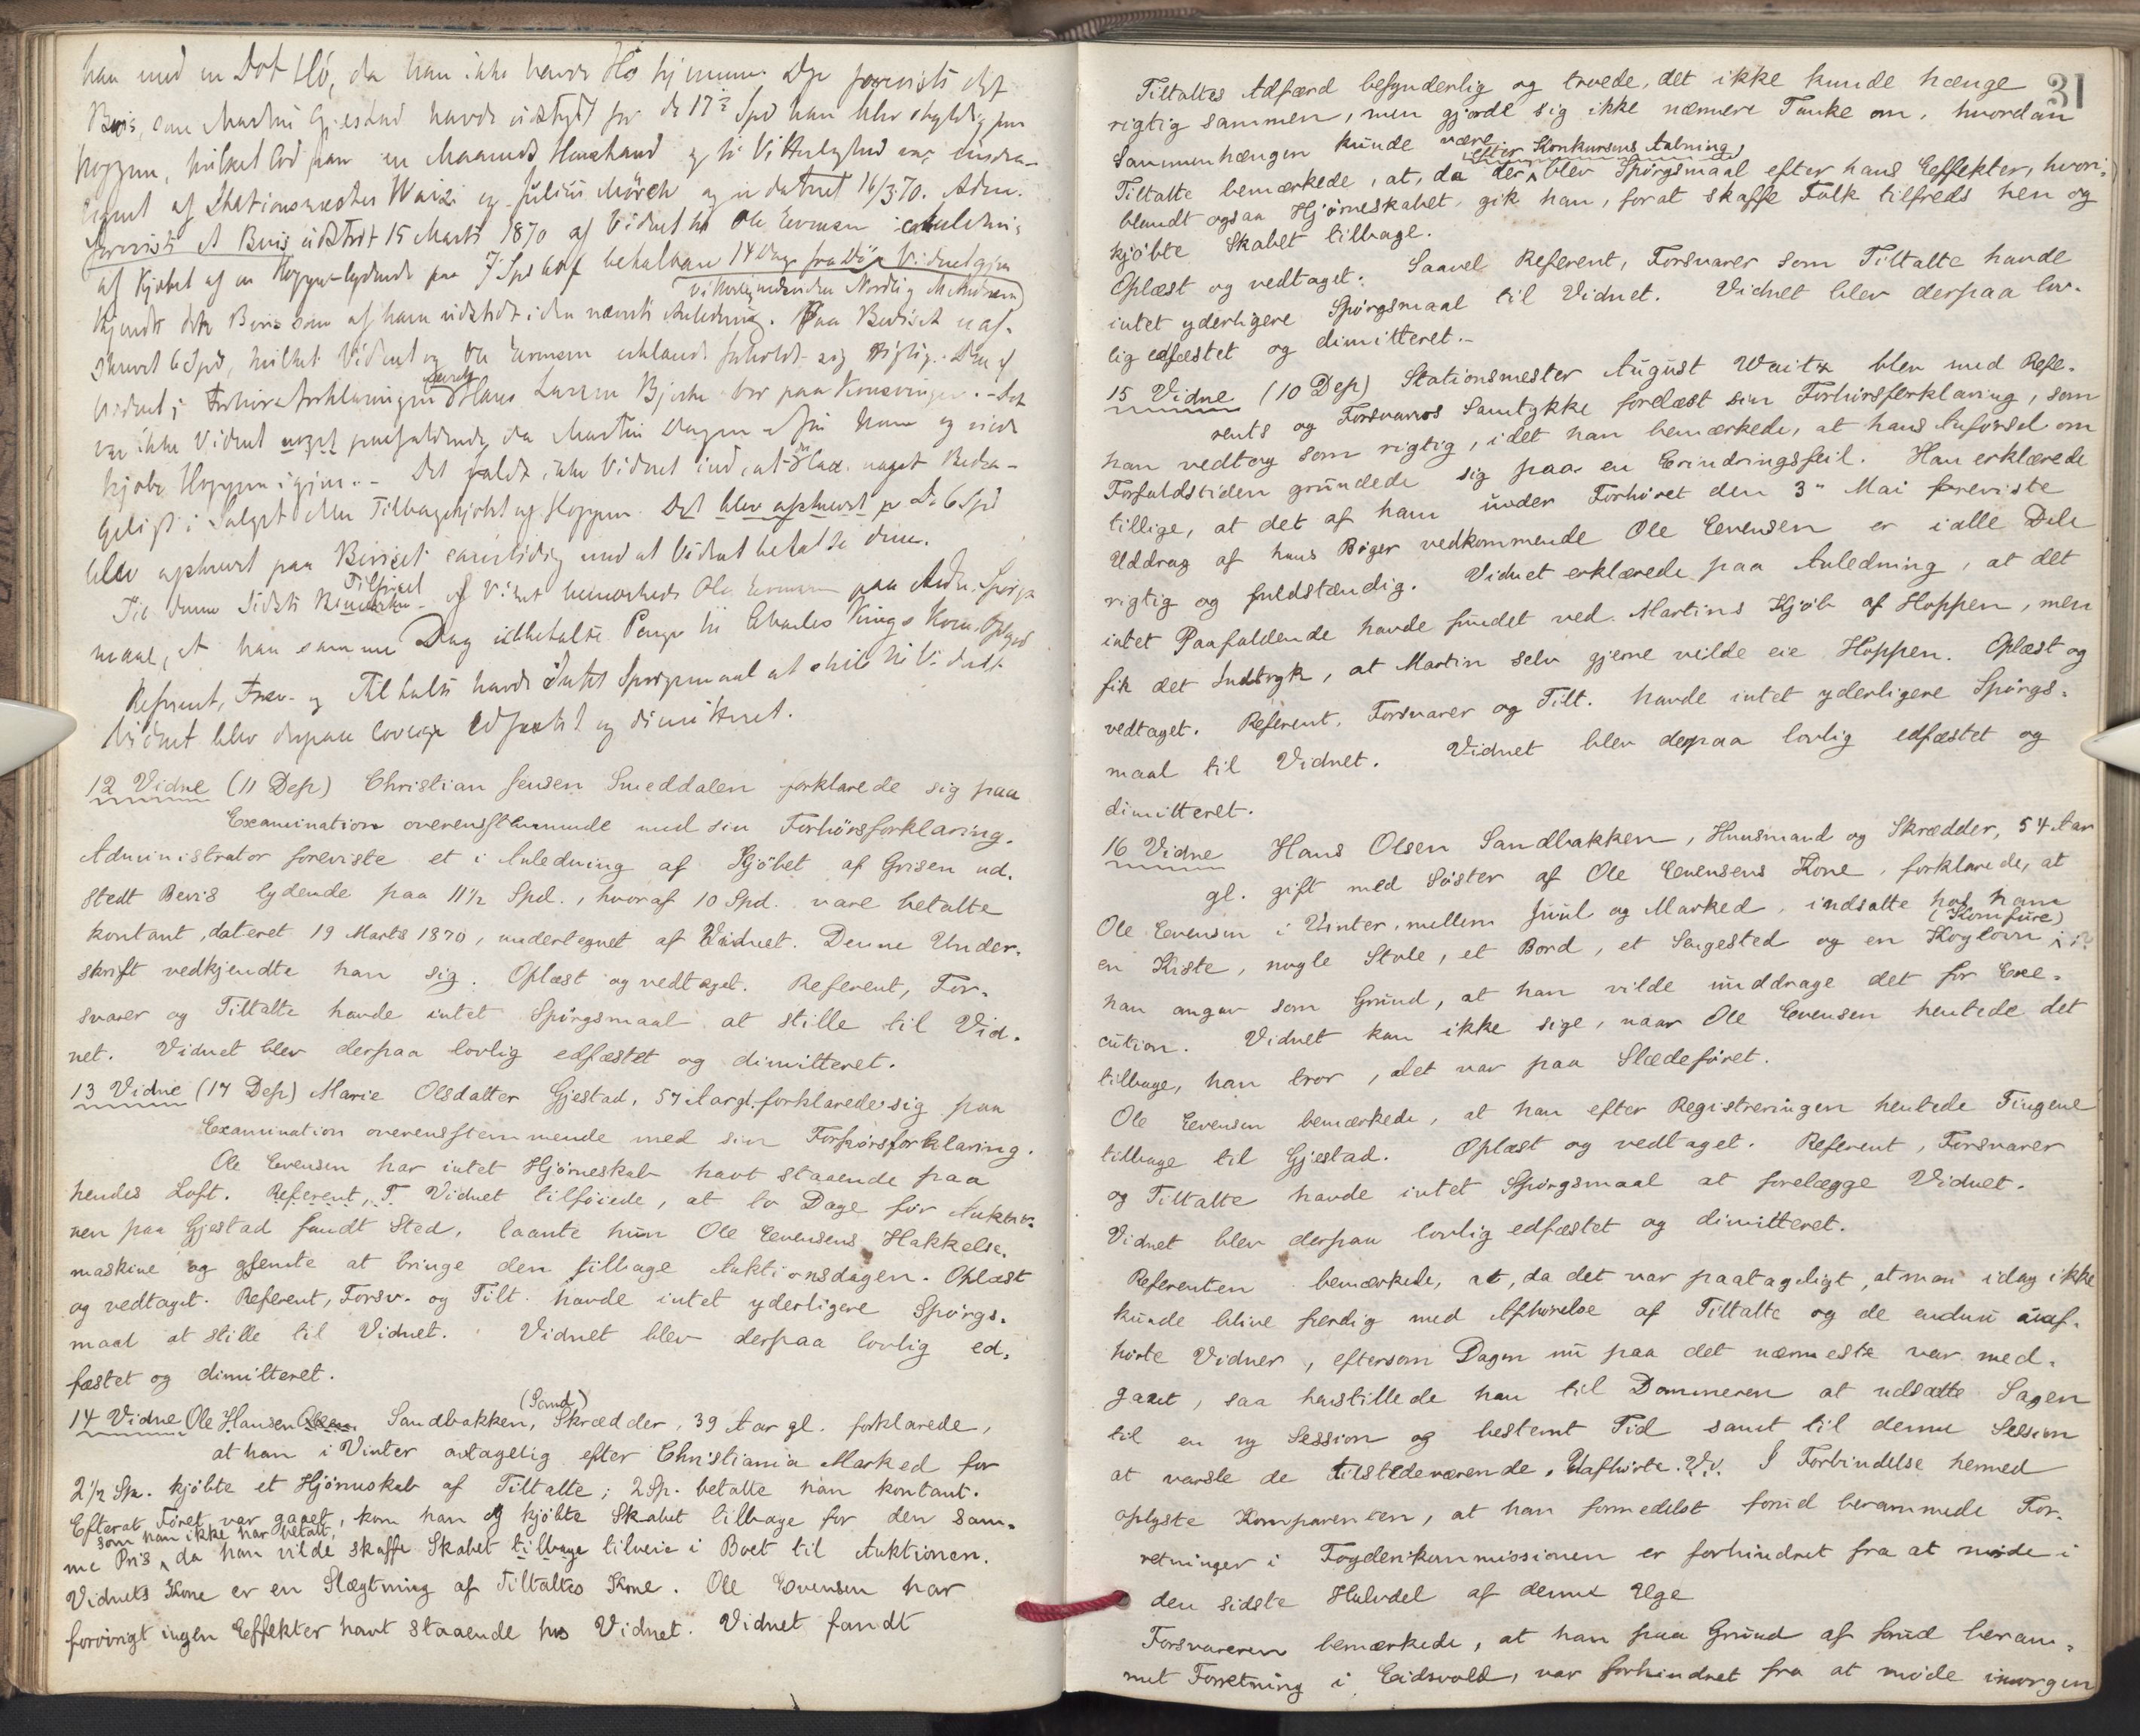 han med en Dot Hö, da han ikke havde Hö hjemme. Der forevistes det
Bevis, som Martin Gjestad havde udstedt for de 17½ Spd han blev skyldig paa
Hoppen, hvilket lød paa en Maaneds Henstand og til Vitterlighed var underteg-
tegnet af Stationsmester Waitz og Julius Mörch og er dateret 16/3 70. Adm.
foreviste et Bevis udstedt 15 Marts 1870 af Vidnet til Ole Evensen i Anledning
af Kjøbet af en Hoppe lydende paa 7 Spd at betale om 14 Dage fra Do. Vidnet gjen
(Vitterlighedsvidner Nordli og M. Andersen)
kjendte dette Bevis som af ham udstedt i den nævnte Anledning. Paa Beviset er af-
skrevet 6 Spd, hvilket Vidnet og Ole Evensen erklærede forholdt sig rigtig. Den af
Vidnet i Forhørsforklaringen nævnte Hans Larsen Bjerke bor paa Kongsvinger. Det
var ikke Vidnet noget paafaldende, da Martin Dagen efter kom og vilde
kjøbe Hoppen igjen. - Det faldt ikke Vidnet ind, at der var noget Bedra-
geligt i Salget eller Tilbagekjøbet af Hoppen. Det blev afskrevet p. D. 6 Spd
blev afskrevet paa Beviset samtidig med at Vidnet betalte dem.
Til denne sidste Tilføiel af Vidnet bemærkede Ole Evensen paa Adm. Spörgs
maal, at han samme Dag udbetalte Penge til Charles Kings Kom. Oplæst
Referent, Forsv. og Tiltalte havde Intet Spörgsmaal at stille til Vidnet.
Vidnet blev derpaa lovlig edfæstet og dimitteret.
12 Vidne (11 Dep) Christian Jensen Smeddalen forklarede sig paa
Examination overensstemmende med sin Forhörsforklaring.
Administrator foreviste et i Anledning af Kjöbet af Grisen ud-
stedt Bevis lydende paa 11½ Spd., hvoraf 10 Spd. vare betalte
kontant, dateret 19 Marts 1870, undertegnet af Vidnet. Denne Under-
skrift vedkjendte han sig. Oplæst og vedtaget. Referent, For-
svarer og Tiltalte havde intet Spörgsmaal at stille til Vid-
net. Vidnet blev derpaa lovlig edfæstet og dimitteret.
13 Vidne (17 Dep) Marie Olsdatter Gjestad, 57 Aar gl. forklarede sig paa
Examination overensstemmende med sin Forhörsforklaring.
Ole Evensen har intet Hjörneskab havt staaende paa
hendes Loft. Referent, F. Vidnet tilföiede, at to Dage för Auktio-
nen paa Gjestad fandt Sted, laante hun Ole Evensens Hakkelse-
maskine og glemte at bringe den tilbage Auktionsdagen. Oplæst
og vedtaget. Referent, Forsv. og Tilt. havde intet yderligere Spörgs-
maal at stille til Vidnet. Vidnet blev derpaa lovlig ed-
fæstet og dimitteret.
(Sand)
14 Vidne Ole Hansen Sandbakken, Skrædder, 39 Aar gl. forklarede,
at han i Vinter antagelig efter Christiania Marked for
2½ Sp. kjöbte et Hjörneskab af Tiltalte; 2 Sp. betalte han kontant.
Efterat Föret var gaaet, kom han og kjöbte Skabet tilbage for den sam-
som han ikke har betalt,
me Pris, da han vilde skaffe Skabet tilbage tilveie i Boet til Auktionen.
Vidnets Kone er en Slægtning af Tiltaltes Kone. Ole Evensen har
forövrigt ingen Effekter havt staaende hos Vidnet. Vidnet fandt
31
Tiltaltes Adfærd besynderlig og troede, det ikke kunde hænge
rigtig sammen, men gjorde sig ikke nærmere Tanke om, hvordan
Sammenhængen kunde være.
efter Konkursens Aabning
Tiltalte bemærkede, at, da der blev Spörgsmaal efter hans Effekter, hvori-
blandt ogsaa Hjörneskabet, gik han, forat skaffe Folk tilfreds hen og
kjöbte Skabet tilbage.
Oplæst og vedtaget. Saavel Referent, Forsvarer som Tiltalte havde
intet yderligere Spörgsmaal til Vidnet. Vidnet blev derpaa lov-
lig edfæstet og dimitteret.-
15 Vidne (10 Dep) Stationsmester August Waitz blev med Refe-
rents og Forsvarers Samtykke forelæst sin Forhörsforklaring, som
han vedtog som rigtig, idet han bemærkede, at hans Anförsel om
Forfaldstiden grundede sig paa en Erindringsfeil. Han erklærede
tillige, at det af ham under Forhöret den 3" Mai foreviste
Uddrag af hans Böger vedkommende Ole Evensen er i alle Dele
rigtig og fuldstændig. Vidnet erklærede paa Anledning, at det
intet Paafaldende havde fundet ved Martins Kjöb af Hoppen, men
fik det Indtryk, at Martin selv gjerne vilde eie Hoppen. Oplæst og
vedtaget. Referent, Forsvarer og Tilt. havde intet yderligere Spörgs-
maal til Vidnet. Vidnet blev derpaa lovlig edfæstet og
dimitteret.
16 Vidne Hans Olsen Sandbakken, Huusmand og Skrædder, 54 Aar
gl. gift med Söster af Ole Evensens Kone, forklarede, at
Ole Evensen i Vinter, mellem Juul og Marked, indsatte hos ham
(Komfure)
en Kiste, nogle Stole, et Bord, et Sengested og en Kogeovn
han angav som Grund, at han vilde unddrage det for Exe-
cution. Vidnet kan ikke sige, naar Ole Evensen hentede det
tilbage, han tror, det var paa Slædeföret.
Ole Evensen bemærkede, at han efter Registreringen hentede Tingene
tilbage til Gjestad. Oplæst og vedtaget. Referent, Forsvarer
og Tiltalte havde intet Spörgsmaal at forelægge Vidnet.
Vidnet blev derpaa lovlig edfæstet og dimitteret.
Referenten bemærkede, at, da det var paatageligt, at man idag ikke
kunde blive færdig med Afhörelse af Tiltalte og de endnu uaf-
hörte Vidner, eftersom Dagen nu paa det nærmeste var med-
gaaet, saa henstillede han til Dommeren at udsætte Sagen
til en ny Session og bestemt Tid samt til denne Session
at varsle de tilstedeværende, Uafhörte V.V. I Forbindelse hermed
oplyste Komparenten, at han formedelst forud berammede For-
retninger i Fogderikommissionen er forhindret fra at möde i
den sidste Halvdel af denne Uge
Forsvareren bemærkede, at han paa Grund af forud beram-
met Forretning i Eidsvold, var forhindret fra at möde imorgen